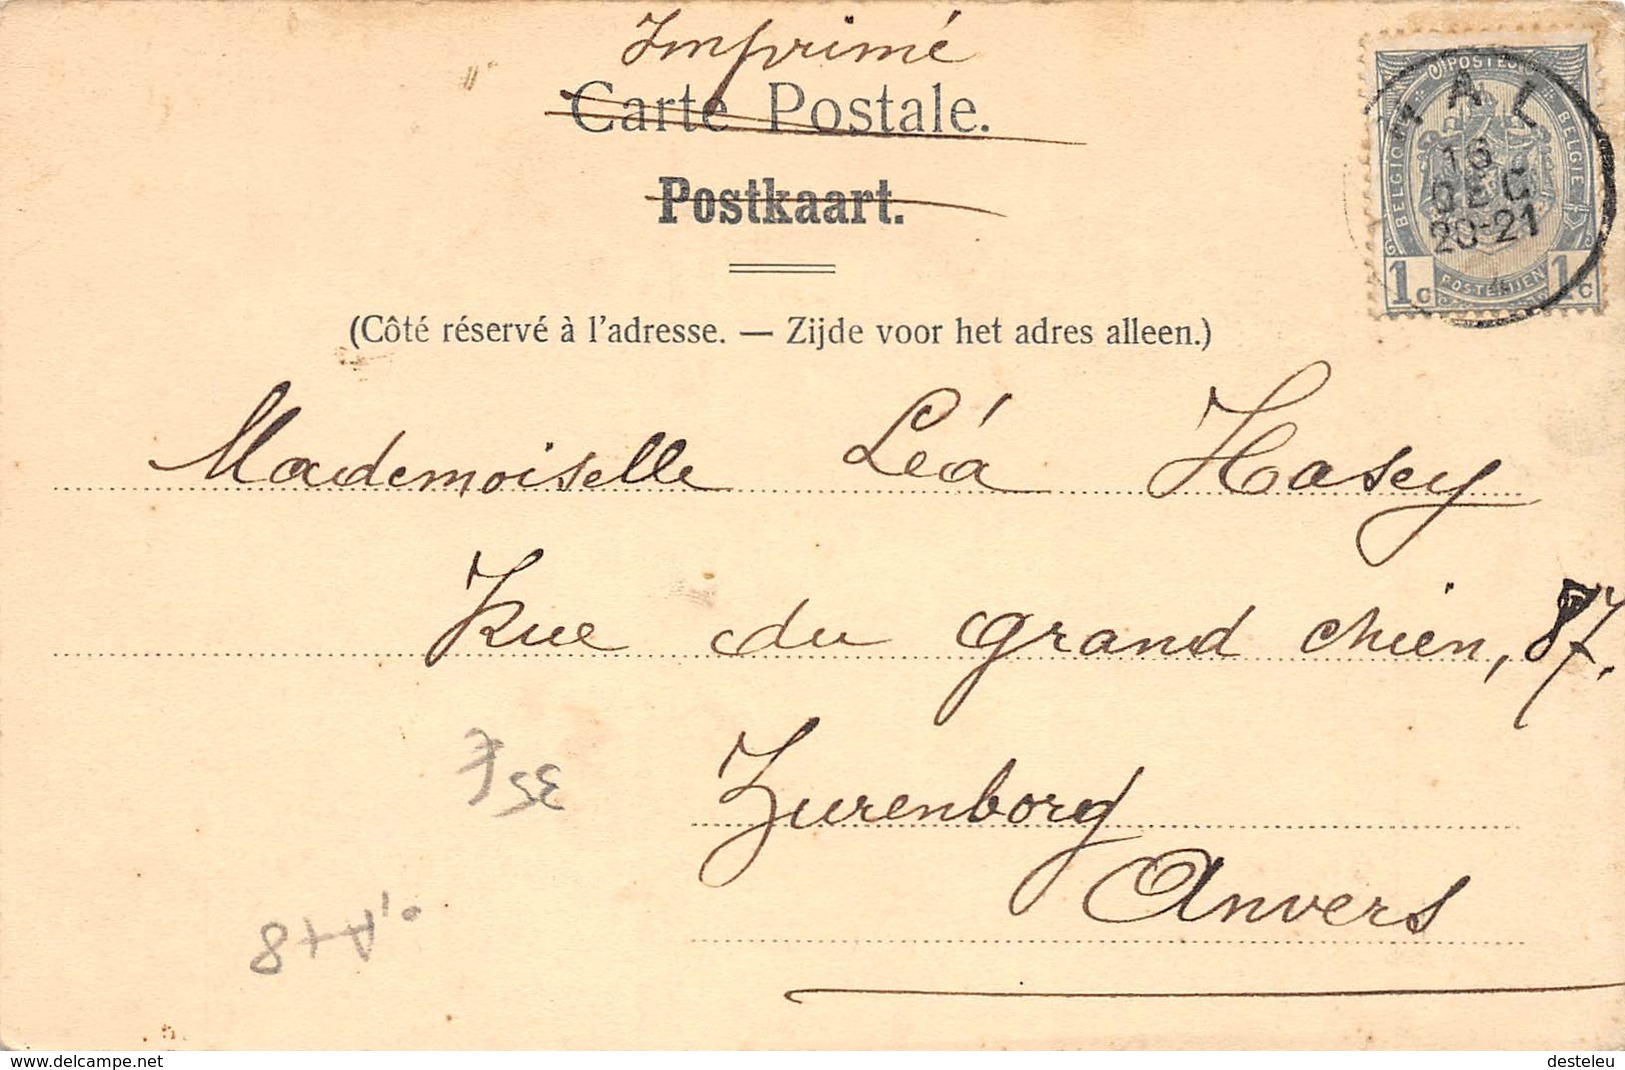 Imprimé
Carte Postale.
Postkaart.
(Côté réservé à l'adresse. — Zijde voor het adres alleen.)
POSTES
BELGIQUE
BELGIË
HAL
16
DEC
20-21
1c
POSTERIJEN
1c
Mademoiselle Léa Hasey
Rue du grand chien, 87.
Zurenborg
Anvers
www.delcampe.net
desteleu